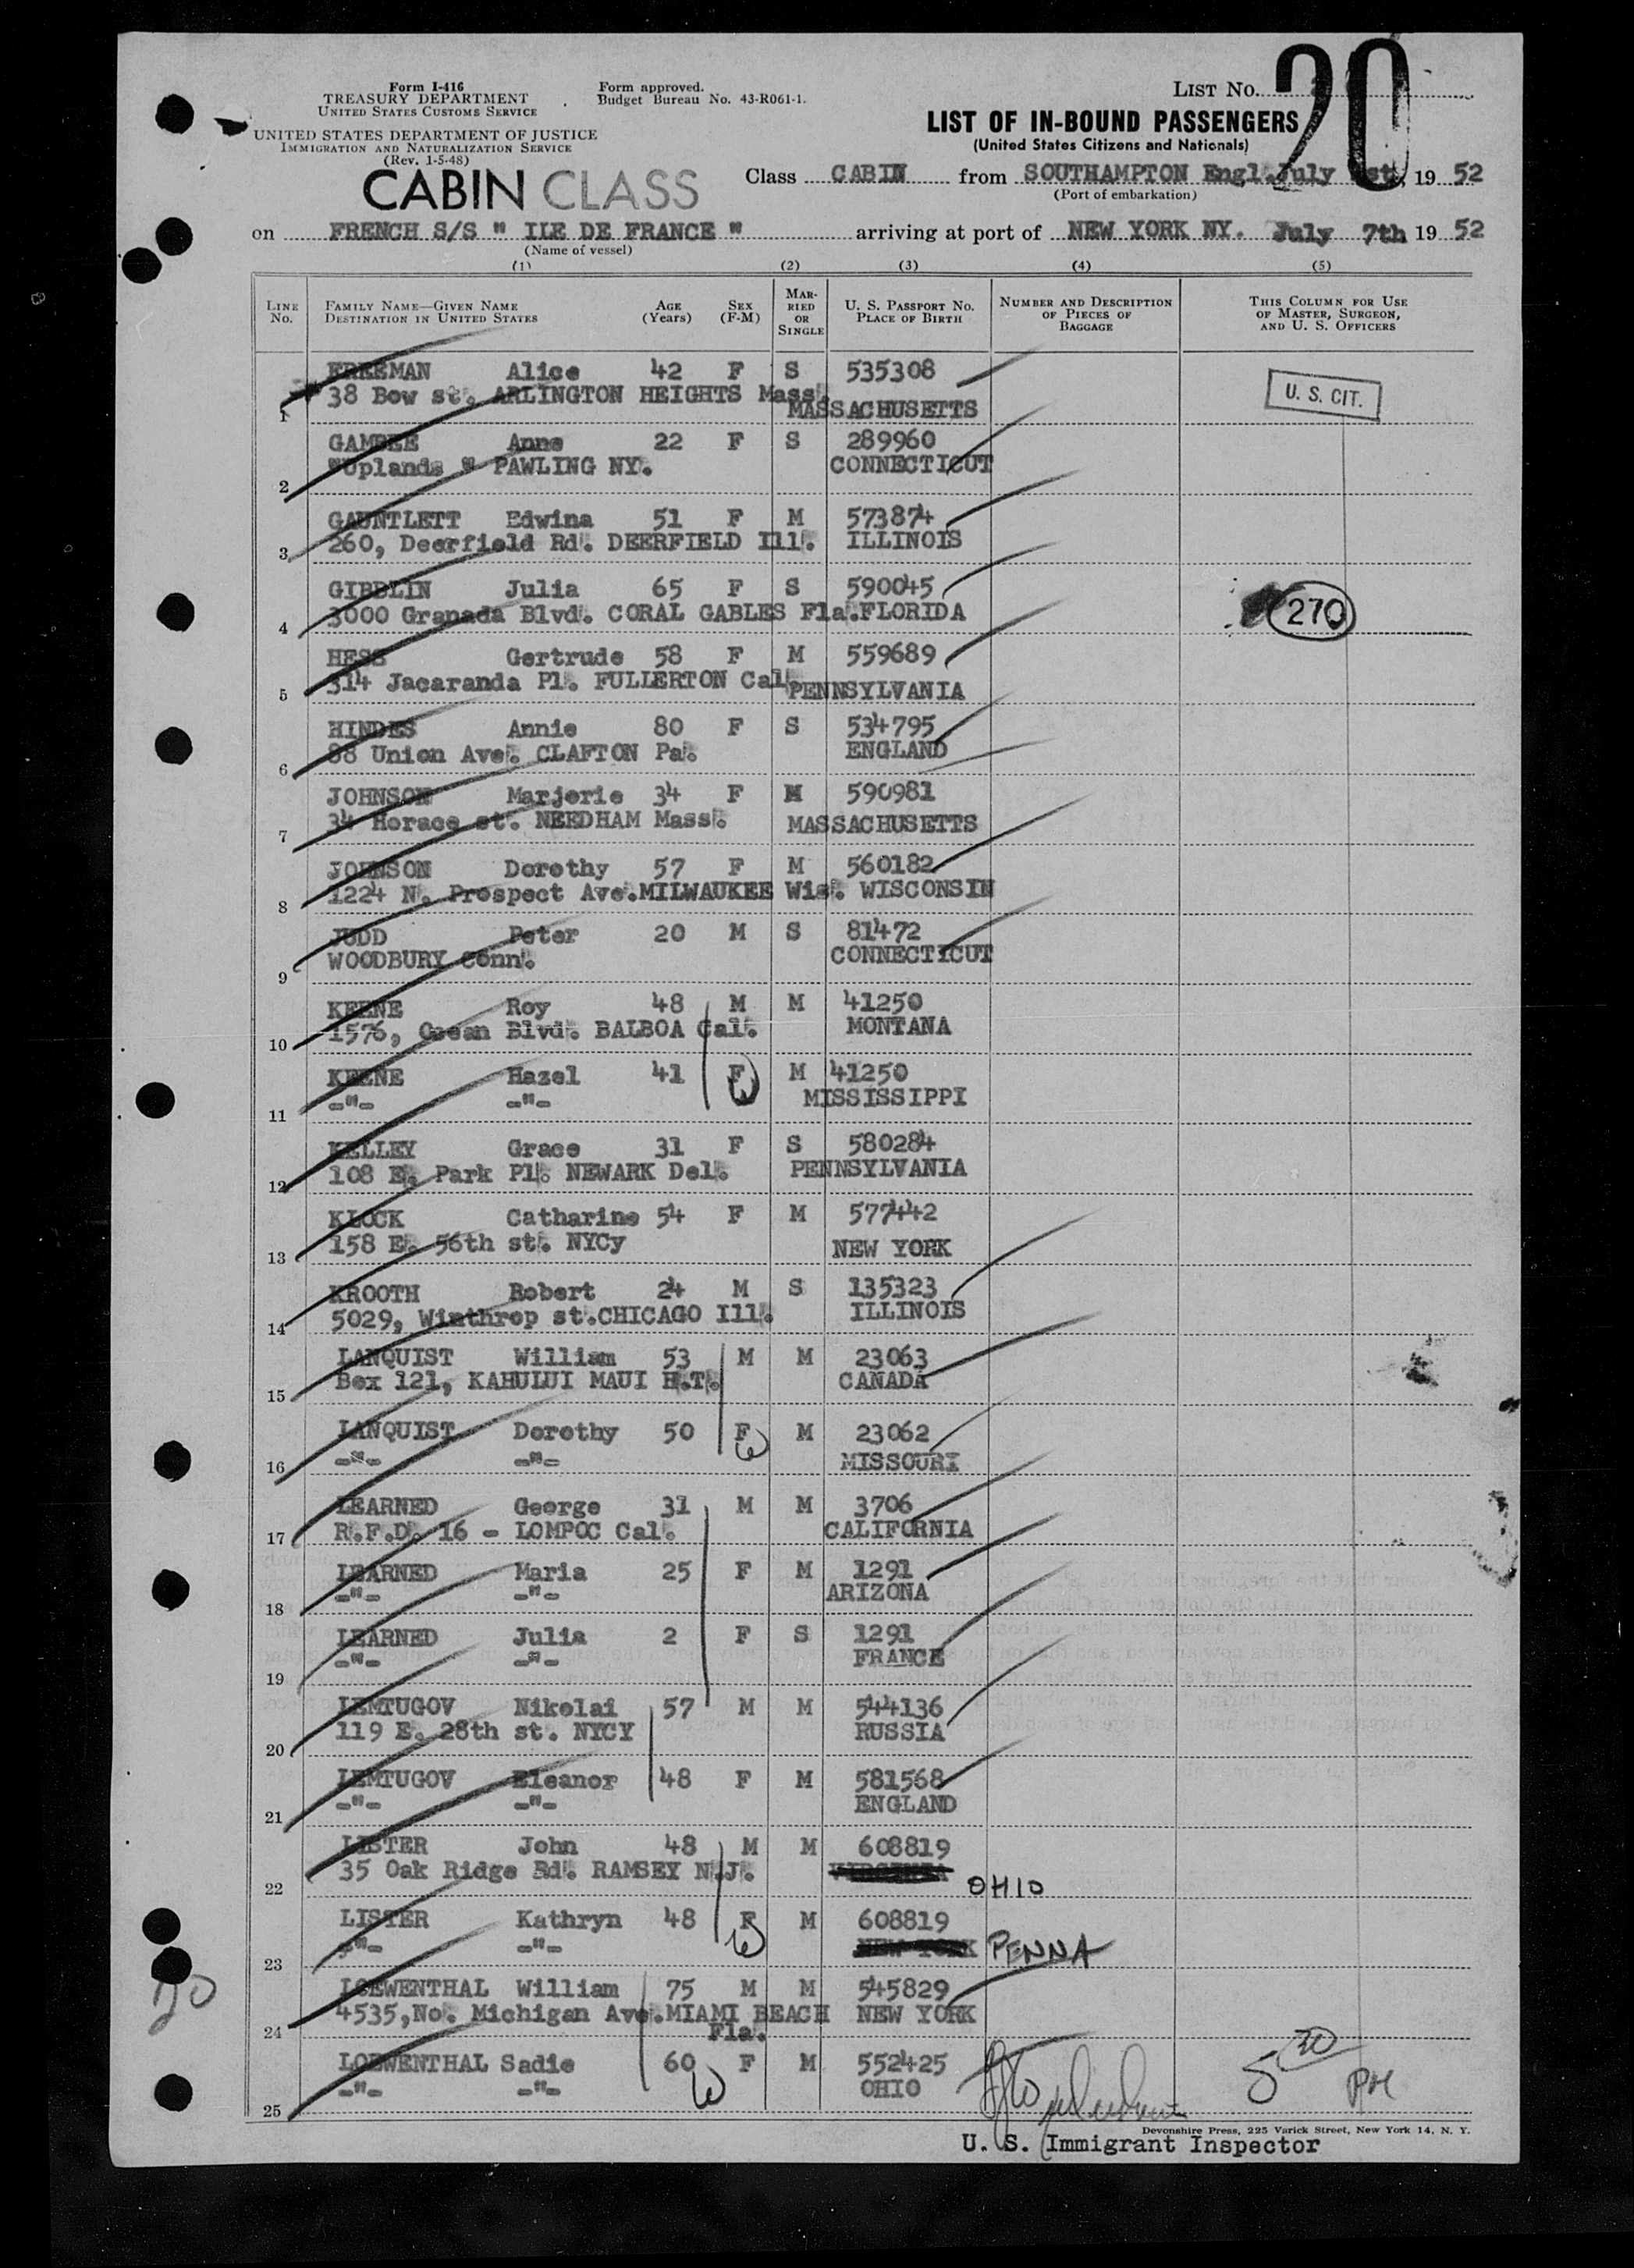 Form I-416
TREASURY DEPARTMENT
UNITED STATES CUSTOMS SERVICE
Form approved.
Budget Bureau No. 43-R061-1.
LIST No. 20
UNITED STATES DEPARTMENT OF JUSTICE
IMMIGRATION AND NATURALIZATION SERVICE
(Rev. 1-5-48)
LIST OF IN-BOUND PASSENGERS
(United States Citizens and Nationals)
CABIN CLASS
Class CABIN from SOUTHAMPTON Engl. July st, 19 52
(Port of embarkation)
on FRENCH S/S " ILE DE FRANCE " arriving at port of NEW YORK NY. July 7th 19 52
(Name of vessel)
(1) (2) (3) (4) (5)
LINE No. FAMILY NAME—GIVEN NAME DESTINATION IN UNITED STATES AGE (Years) SEX (F-M) MARRIED OR SINGLE U. S. PASSPORT No. PLACE OF BIRTH NUMBER AND DESCRIPTION OF PIECES OF BAGGAGE THIS COLUMN FOR USE OF MASTER, SURGEON, AND U. S. OFFICERS
FREEMAN Alice 42 F S 535308
38 Bow st. ARLINGTON HEIGHTS Mass. U. S. CIT.
1 MASSACHUSETTS
GAMBEE Anne 22 F S 289960
"Uplands " PAWLING NY. CONNECTICUT
2
GAUNTLETT Edwina 51 F M 573874
3 260, Deerfield Rd. DEERFIELD Ill. ILLINOIS
GIBBLIN Julia 65 F S 590045
3000 Granada Blvd. CORAL GABLES Fla. FLORIDA 270
4
HESS Gertrude 58 F M 559689
5 314 Jacaranda Pl. FULLERTON Cal. PENNSYLVANIA
HINDES Annie 80 F S 534795
88 Union Ave. CLAFTON Pa. ENGLAND
6
JOHNSON Marjorie 34 F M 590981
7 34 Horace st. NEEDHAM Mass. MASSACHUSETTS
JOHNSON Dorothy 57 F M 560182
8 1224 N. Prospect Ave. MILWAUKEE Wis. WISCONSIN
JUDD Peter 20 M S 81472
WOODBURY Conn. CONNECTICUT
9
KEENE Roy 48 M M 41250
10 1576, Ocean Blvd. BALBOA Cal. MONTANA
KEENE Hazel 41 F M 41250
-"- -"- MISSISSIPPI
11
KELLEY Grace 31 F S 580284
12 108 E. Park Pl. NEWARK Del. PENNSYLVANIA
KLOCK Catharine 54 F M 577442
13 158 E. 56th st. NYCy NEW YORK
KROOTH Robert 24 M S 135323
14 5029, Winthrop st. CHICAGO Ill. ILLINOIS
LANQUIST William 53 M M 23063
15 Box 121, KAHULUI MAUI H.T. CANADA
LANQUIST Dorothy 50 F M 23062
16 -"- -"- MISSOURI
LEARNED George 31 M M 3706
17 R.F.D. 16 - LOMPOC Cal. CALIFORNIA
LEARNED Maria 25 F M 1291
18 -"- -"- ARIZONA
LEARNED Julia 2 F S 1291
19 -"- -"- FRANCE
LEMTUGOV Nikolai 57 M M 544136
20 119 E. 28th st. NYCY RUSSIA
LEMTUGOV Eleanor 48 F M 581568
21 -"- -"- ENGLAND
LISTER John 48 M M 608819
35 Oak Ridge Rd. RAMSEY N.J. VIRGINIA
22 OHIO
LISTER Kathryn 48 F M 608819
23 -"- -"- NEW YORK PENNA
20
LOEWENTHAL William 75 M M 545829
4535, No. Michigan Ave. MIAMI BEACH NEW YORK
24 Fla.
LOEWENTHAL Sadie 60 F M 552425
25 -"- -"- OHIO
5 20 PM
Devonshire Press, 225 Varick Street, New York 14, N. Y.
U. S. Immigrant Inspector